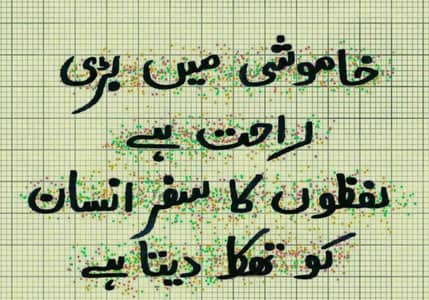 خاموشی میں بڑی
راحت ہے
لفظوں کا سفر انسان
کو تھکا دیتا ہے